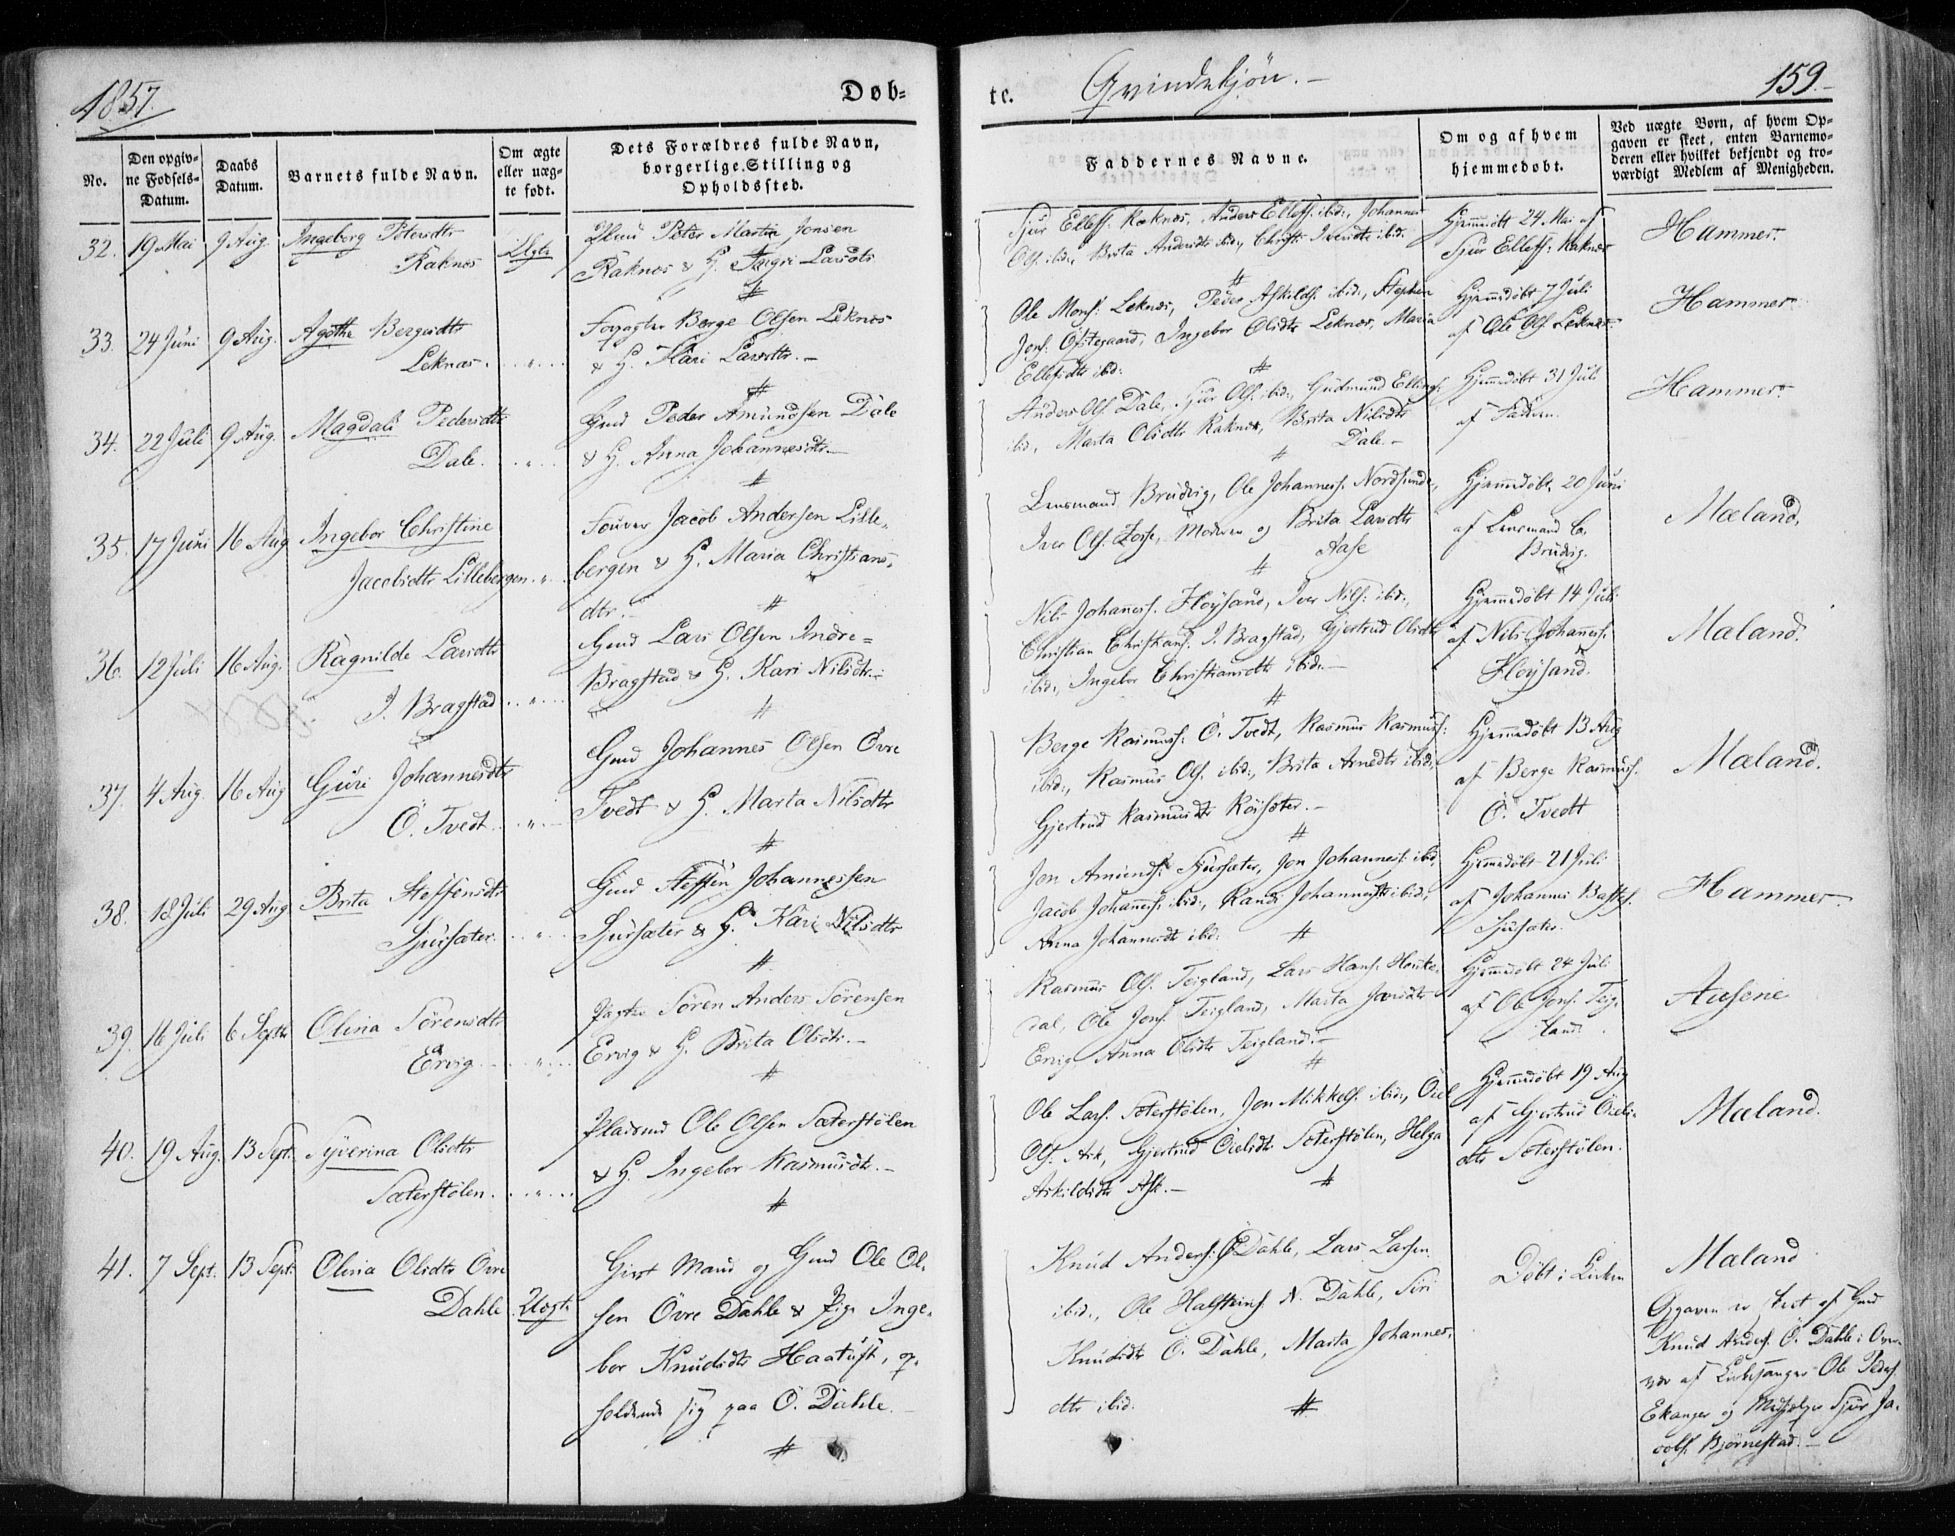 1857.
Døb-
te.
Qvindekjön.
159.
No.
Den opgiv-
ne Fødsels-
Datum.
Daabs
Datum.
Barnets fulde Navn.
Om ægte
eller uæg-
te født.
Dets Forældres fulde Navn,
borgerlige Stilling og
Opholdssted.
Faddernes Navne.
Om og af hvem
hjemmedøbt.
Ved uægte Børn, af hvem Op-
gaven er skeet, enten Barnemo-
deren eller hvilket bekjendt og tro-
værdigt Medlem af Menigheden.
32. 19 Mai 9 Aug Ingeborg Petersdtr
Raknes
Peter Martin Jensen
Raknes & H. Ingri Larsdtr
Sjur Ellefs. Raknes, Anders Ellefs. ibid:, Johannes
Ols. ibid:, Brita Andersdtr ibid:, Christi Iversdtr ibid:
Hjemmedöbt 24 Mai af
Sjur Ellefs: Raknes
Hammer.
33. 24 Juni 9 Aug. Agothe Bergesdtr
Leknæs. "
Forpagter Berge Olsen Leknes
& H. Kari Larsdtr. -
Ole Mons: Leknes, Peder Askilds. ibid:, Stephen
Jons: Ostegaard, Ingebor Olsdtr Leknes, Maria
Ellefsdtr ibid:
Hjemmedöbt 7 Juli
af Ole Ols. Leknes.
Hammer
34. 22 Juli 9 Aug. Magdali Pedersdtr
Dale. "
Gmd Peder Amundsen Dale
& H. Anna Johannesdtr. -
Anders Ols. Dale, Sjur Ols. ibid:, Gudmund Ellings:
ibid, Marta Olsdtr Raknes, Brita Nilsdtr
Dale. -
Hjemmedöbt 31 Juli
af Faderen.
Hammer.
35. 17 Juni 16 Aug Ingebor Christine
Jacobsdtr Lillebergen. "
Jacob Andersen Lille-
bergen & H. Maria Christians-
dtr. -
Lensmand Brudvig, Ole Johanness. Nordhunde,
Iver Ols. Fosse, Moderen og Brita Larsdtr
Aase
Hjemmedöbt. 20 Juni
af Lensmand C.
Brudvig.
Mæland.
36. 12 Juli 16 Aug. Ragnilde Larsdtr
I. Bragstad "
Gmd Lars Olsen Indre=
Bragstad & H. Kari Nilsdtr. -
Nils Johaness. Höysand, Iver Nils: ibid:,
Christian Christians. I. Bragstad, Gjertrud Olsdtr
ibid:, Ingebor Christiansdtr ibid: -
Hjemmedöbt 14 Juli
af Nils Johaness.
Höysand.
Mæland.
37. 4 Aug. 16 Aug Guri Johannesdtr
Ö. Tvedt. "
Gmd Johannes Olsen Övre
Tvedt & H. Marta Nilsdtr
Berge Rasmuss: Ö. Tvedt, Rasmus Rasmuss:
ibid:, Rasmus Ols. ibid:, Brita Arnedtr ibid:,
Gjertrud Rasmusdtr Röisæter. -
Hjemmedöbt 13 Aug
af Berge Rasmuss.
Ö. Tvedt
Mæland.
38. 18 Juli 29 Aug Brita Steffensdtr
Sjursæter. "
Gmd Steffen Johannessen
Sjursæter & H. Kari Nilsdtr
Jon Amunds: Sjursæter, Jon Johanness: ibid,
Jacob Johanness: ibid:, Randi Johannesdtr ibid:,
Anna Johannesdtr ibid:
Hjemmedöbt 21 Juli
af Johannes
Sjursæter.
Hammer.
39. 16 Juli 6 Septbr Olina Sörensdtr
Ervig "
Sören Anders Sörensen
Ervig & H. Brita Olsdtr. -
Rasmus Ols. Teigland, Lars Hans: Houke-
dal, Ole Jons: Teigland, Marta
Ervig, Anna Olsdtr Teigland. -
Hjemmedöbt 24 Juli
af Ole Jons: Teig-
land.
Aasene
40. 19 Aug. 13 Sept. Syverina Olsdtr
Sæterstölen. "
Pladsmd Ole Olsen Sæterstölen
& H. Ingebor Rasmusdtr. -
Ole Lars. Sæterstölen, Jon Mikkels. ibid:,
Ols. Ask, Gjertrud Sæterstölen, Helga
Askildsdtr Ask. -
Hjemmedöbt 19 Aug
af Gjertrud
dtr Sæterstölen.
Mæland.
41. 7 Sept. 13 Sept. Olina Olsdtr Övre
Dahle Uægte
Gift Mand og Gmd Ole Ol-
sen Övre Dahle & Pige Inge-
bor Knudsdtr Haatuft, op-
holdende sig paa Ö. Dahle. -
Knud Anders: Ö Dahle, Lars Larsen
ibid:, Ole Halsteins. N. Dahle, Siri
Knudsdtr Ö. Dahle, Marta Johannes-
dtr ibid:
Döbt i Kirken
Mæland
Opgaven er skeet af Gmd
Knud Anders. Ö. Dahle i Over-
vær af Kirkesanger Ole Peders.
Ekanger og Sjur Ja-
cobs. Björnestad. -